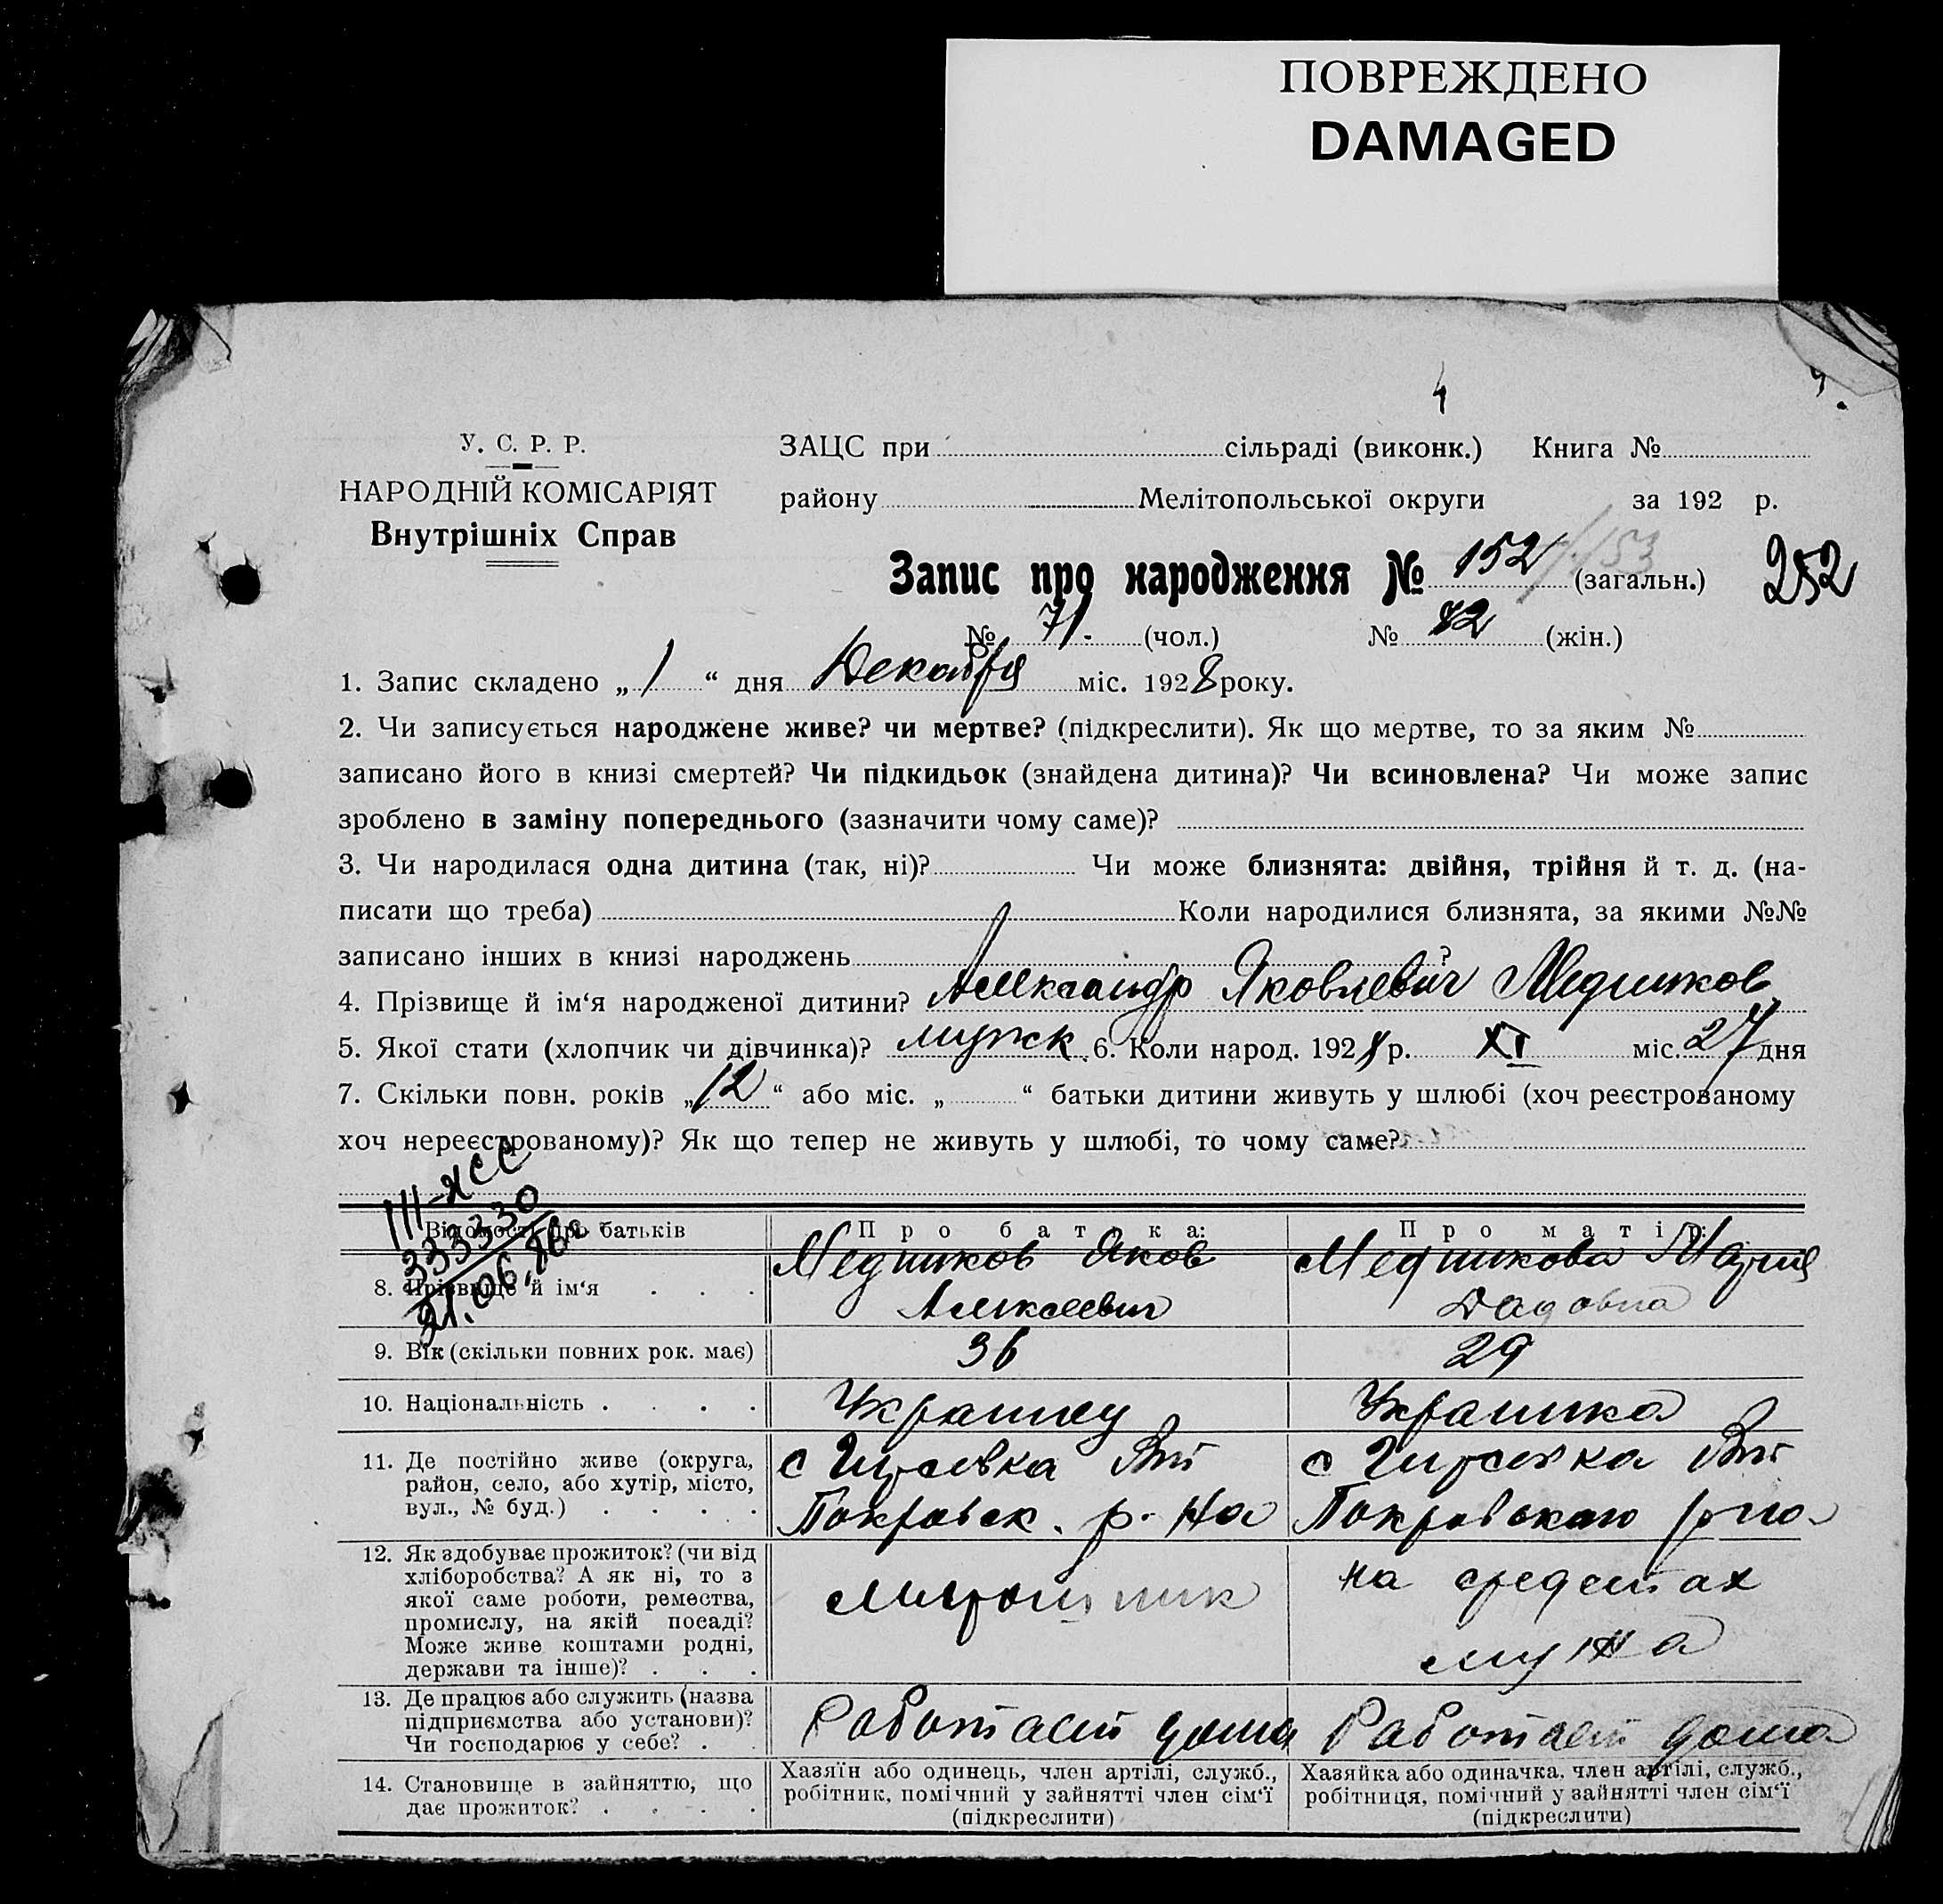 ПОВРЕЖДЕНО
DAMAGED
4
У. С. Р. Р.
НАРОДНІЙ КОМІСАРІЯТ
Внутрішніх Справ
ЗАЦС при сільраді (виконк.) Книга №
району Мелітопольської округи за 192 р.
Запис про народження № 152 /153 (загальн.) 252
№ 71. (чол.) № 82 (жін.)
1. Запис складено „ 1 “ дня Декабря міс. 1928 року.
2. Чи записується народжене живе? чи мертве? (підкреслити). Як що мертве, то за яким №
записано його в книзі смертей? Чи підкидьок (знайдена дитина)? Чи всиновлена? Чи може запис
зроблено в заміну попереднього (зазначити чому саме)?
3. Чи народилася одна дитина (так, ні)? Чи може близнята: двійня, трійня й т. д. (на-
писати що треба) Коли народилися близнята, за якими №№
записано інших в книзі народжень ?
4. Прізвище й ім‘я народженої дитини? Александр Яковлевич Медников
5. Якої стати (хлопчик чи дівчинка)? мужск. 6. Коли народ. 1928 р. XI міс. 27 дня
7. Скільки повн. років „ 12 “ або міс. „ “ батьки дитини живуть у шлюбі (хоч реєстрованому
хоч нереєстрованому)? Як що тепер не живуть у шлюбі, то чому саме?
III-ЖСС
333330
21.06.
Відомості про батьків Про батька: Про матір:
8. Прізвище й ім‘я . . . Медников Яков Алексеевич Медникова Мария
9. Вік (скільки повних рок. має) 36 29
10. Національність . . . . Украинец Украинка
11. Де постійно живе (округа,
район, село, або хутір, місто,
вул., № буд.) . . . .
с Гирсовка
Покровск. р-на
с Гирсовка
Покровского р-на
12. Як здобуває прожиток? (чи від
хліборобства? А як ні, то з
якої саме роботи, ремества,
промислу, на якій посаді?
Може живе коштами родні,
держави та інше)? . . .
Мирошник
на средствах
мужа
13. Де працює або служить (назва
підприємства або установи)?
Чи господарює у себе? . .
Работает дома
Работает дома
14. Становище в зайняттю, що
дає прожиток? . . . .
Хазяїн або одинець, член артілі, служб.,
робітник, помічний у зайнятті член сім‘ї
(підкреслити)
Хазяйка або одиначка, член артілі, служб.,
робітниця, помічний у зайнятті член сім‘ї
(підкреслити)